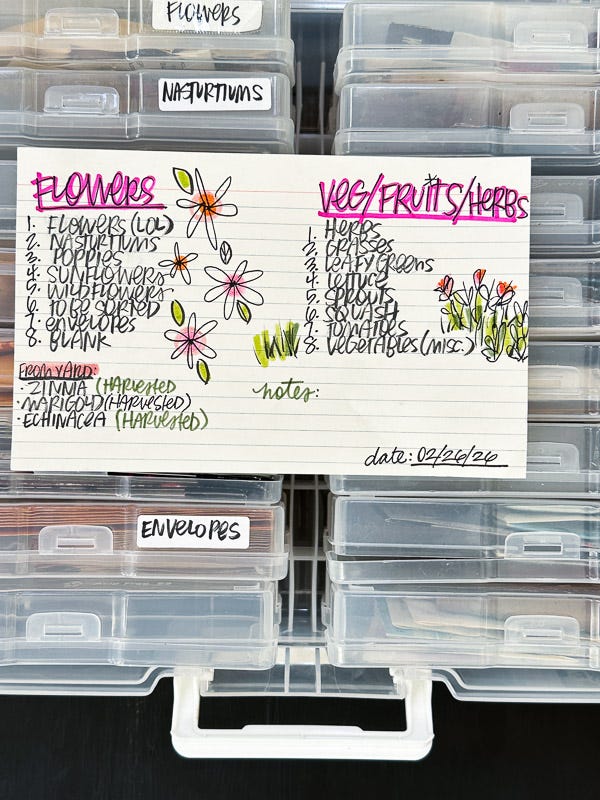 FLOWERS
NASTURTIUMS
FLOWERS
1. FLOWERS (LOL)
2. NASTURTIUMS
3. POPPIES
4. SUNFLOWERS
5. WILDFLOWERS
6. TO BE SORTED
7. ENVELOPES
8. BLANK
FROM YARD:
· ZINNIA (HARVESTED
· MARIGOLD (HARVESTED)
· ECHINACEA (HARVESTED)
VEG/FRUITS/HERBS
1. HERBS
2. GRASSES
3. LEAFY GREENS
4. LETTUCE
5. SPROUTS
6. SQUASH
7. TOMATOES
8. VEGETABLES (MISC.)
notes:
date: 02/26/26
ENVELOPES